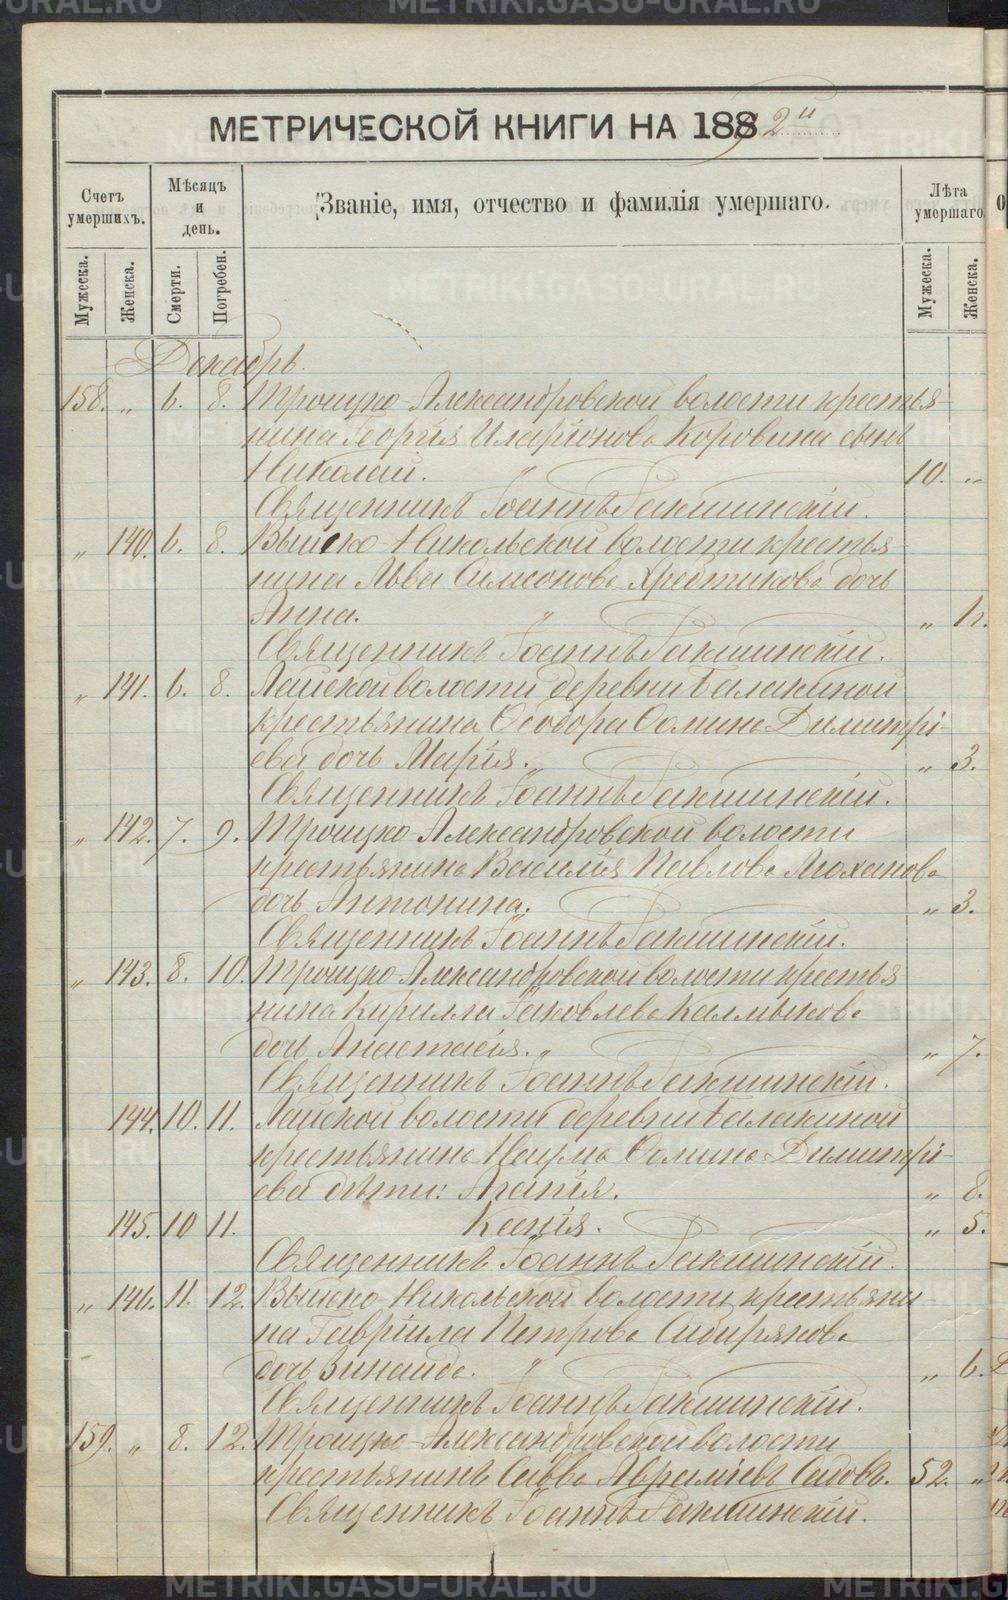 МЕТРИЧЕСКОЙ КНИГИ НА 1892й
Счетъ умершихъ.
Мѣсяцъ и день.
Званіе, имя, отчество и фамилія умершаго.
Лѣта умершаго
Мужеска. Женска. Смерти. Погребен. Мужеска. Женска.
Декабрь.
158. „ 6. 8. Троицко-Александровской волости крестья-
нина Георгія Иларіонова Коровина сынъ
Николай. „ 10. „
Священникъ Іоаннъ
„ 140. 6. 8. Выйско-Никольской волости крестья-
нина Льва Симеонова Хрептикова дочь
Анна. „ „
Священникъ Іоаннъ
„ 141. 6. 8. Лайской волости деревни Балакиной
крестьянина Ѳеодора Ѳомина Димитрі-
ева дочь Марія. „ „ 3.
Священникъ Іоаннъ
„ 142. 7. 9. Троицко-Александровской волости
крестьянина Василія Павлова Плоханова
дочь Антонина. „ 3.
Священникъ Іоаннъ
„ 143. 8. 10. Троицко-Александровской волости крестья
нина Кирилла Іаковлева Калмыкова
дочь Анастасія. „ „ 7.
Священникъ Іоаннъ
144. 10. 11. Лайской волости деревни Балакиной
крестьянина Наума Ѳомина Димитрі-
ева дѣти: Агапія. „ 8.
145. 10 11. Ксенія. „ 5.
Священникъ Іоаннъ
„ 146. 11. 12. Выйско-Никольской волости крестьяни
на Гавріила Петрова Сибирякова
дочь Зинаида. „ „ 6.
Священникъ Іоаннъ
159. „ 8. 12. Троицко-Александровской волости
крестьянинъ Савва Авраміевъ Сидовъ. 52. „
Священникъ Іоаннъ
METRIKI.GASO-URAL.RU